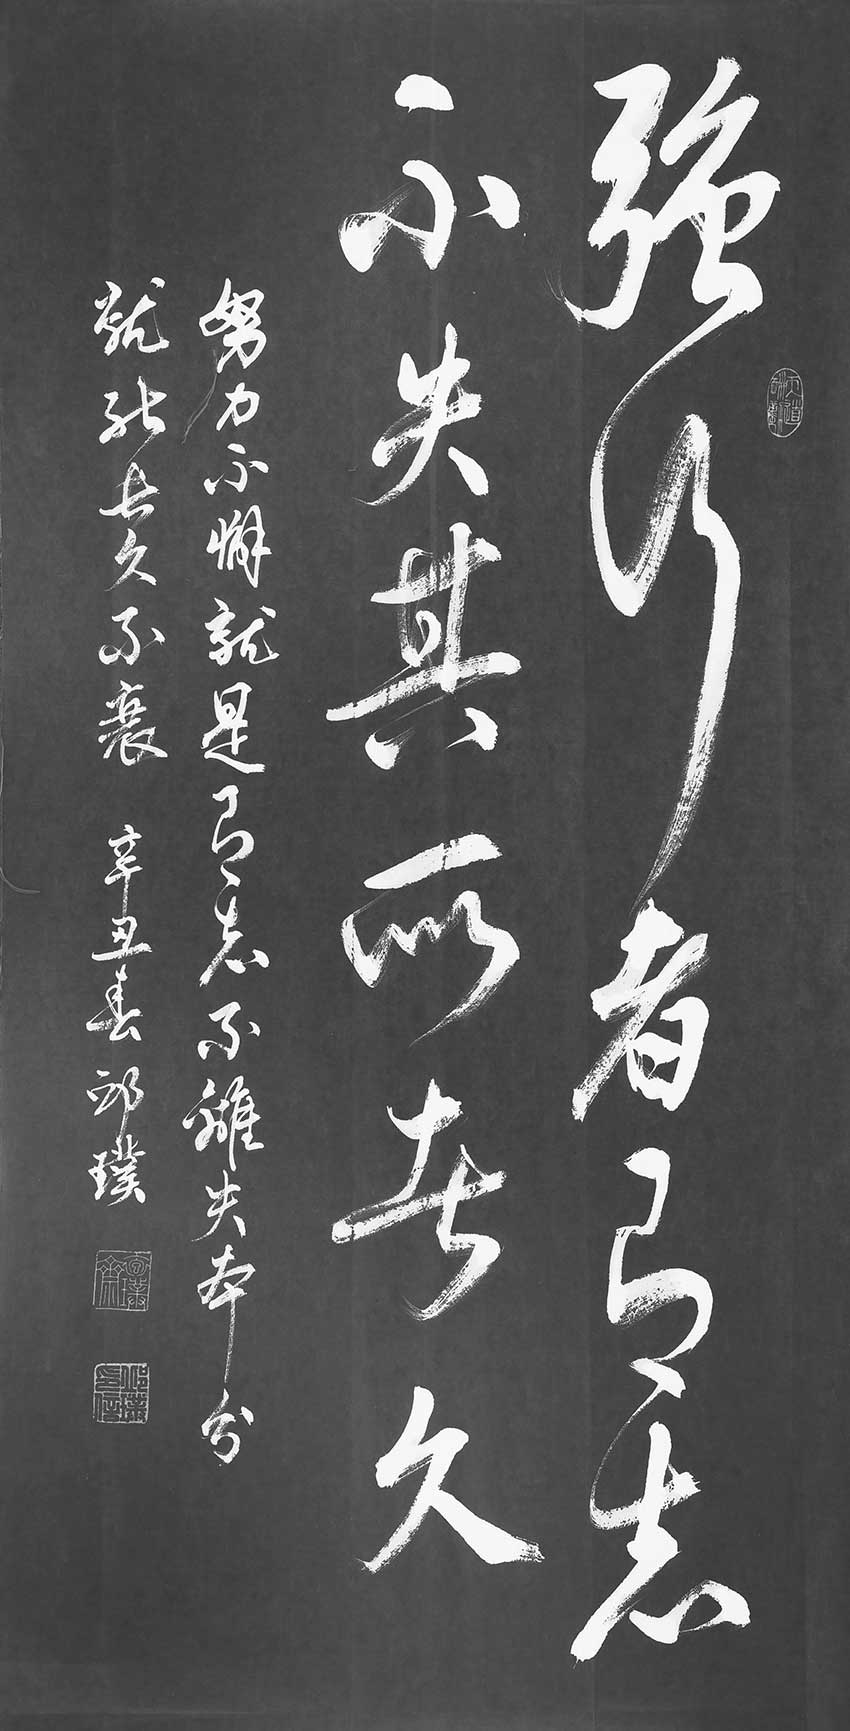 強行者有志
不失其所者久
努力不懈就是有志不離失本分
就能長久不衰 辛丑春 邱璞